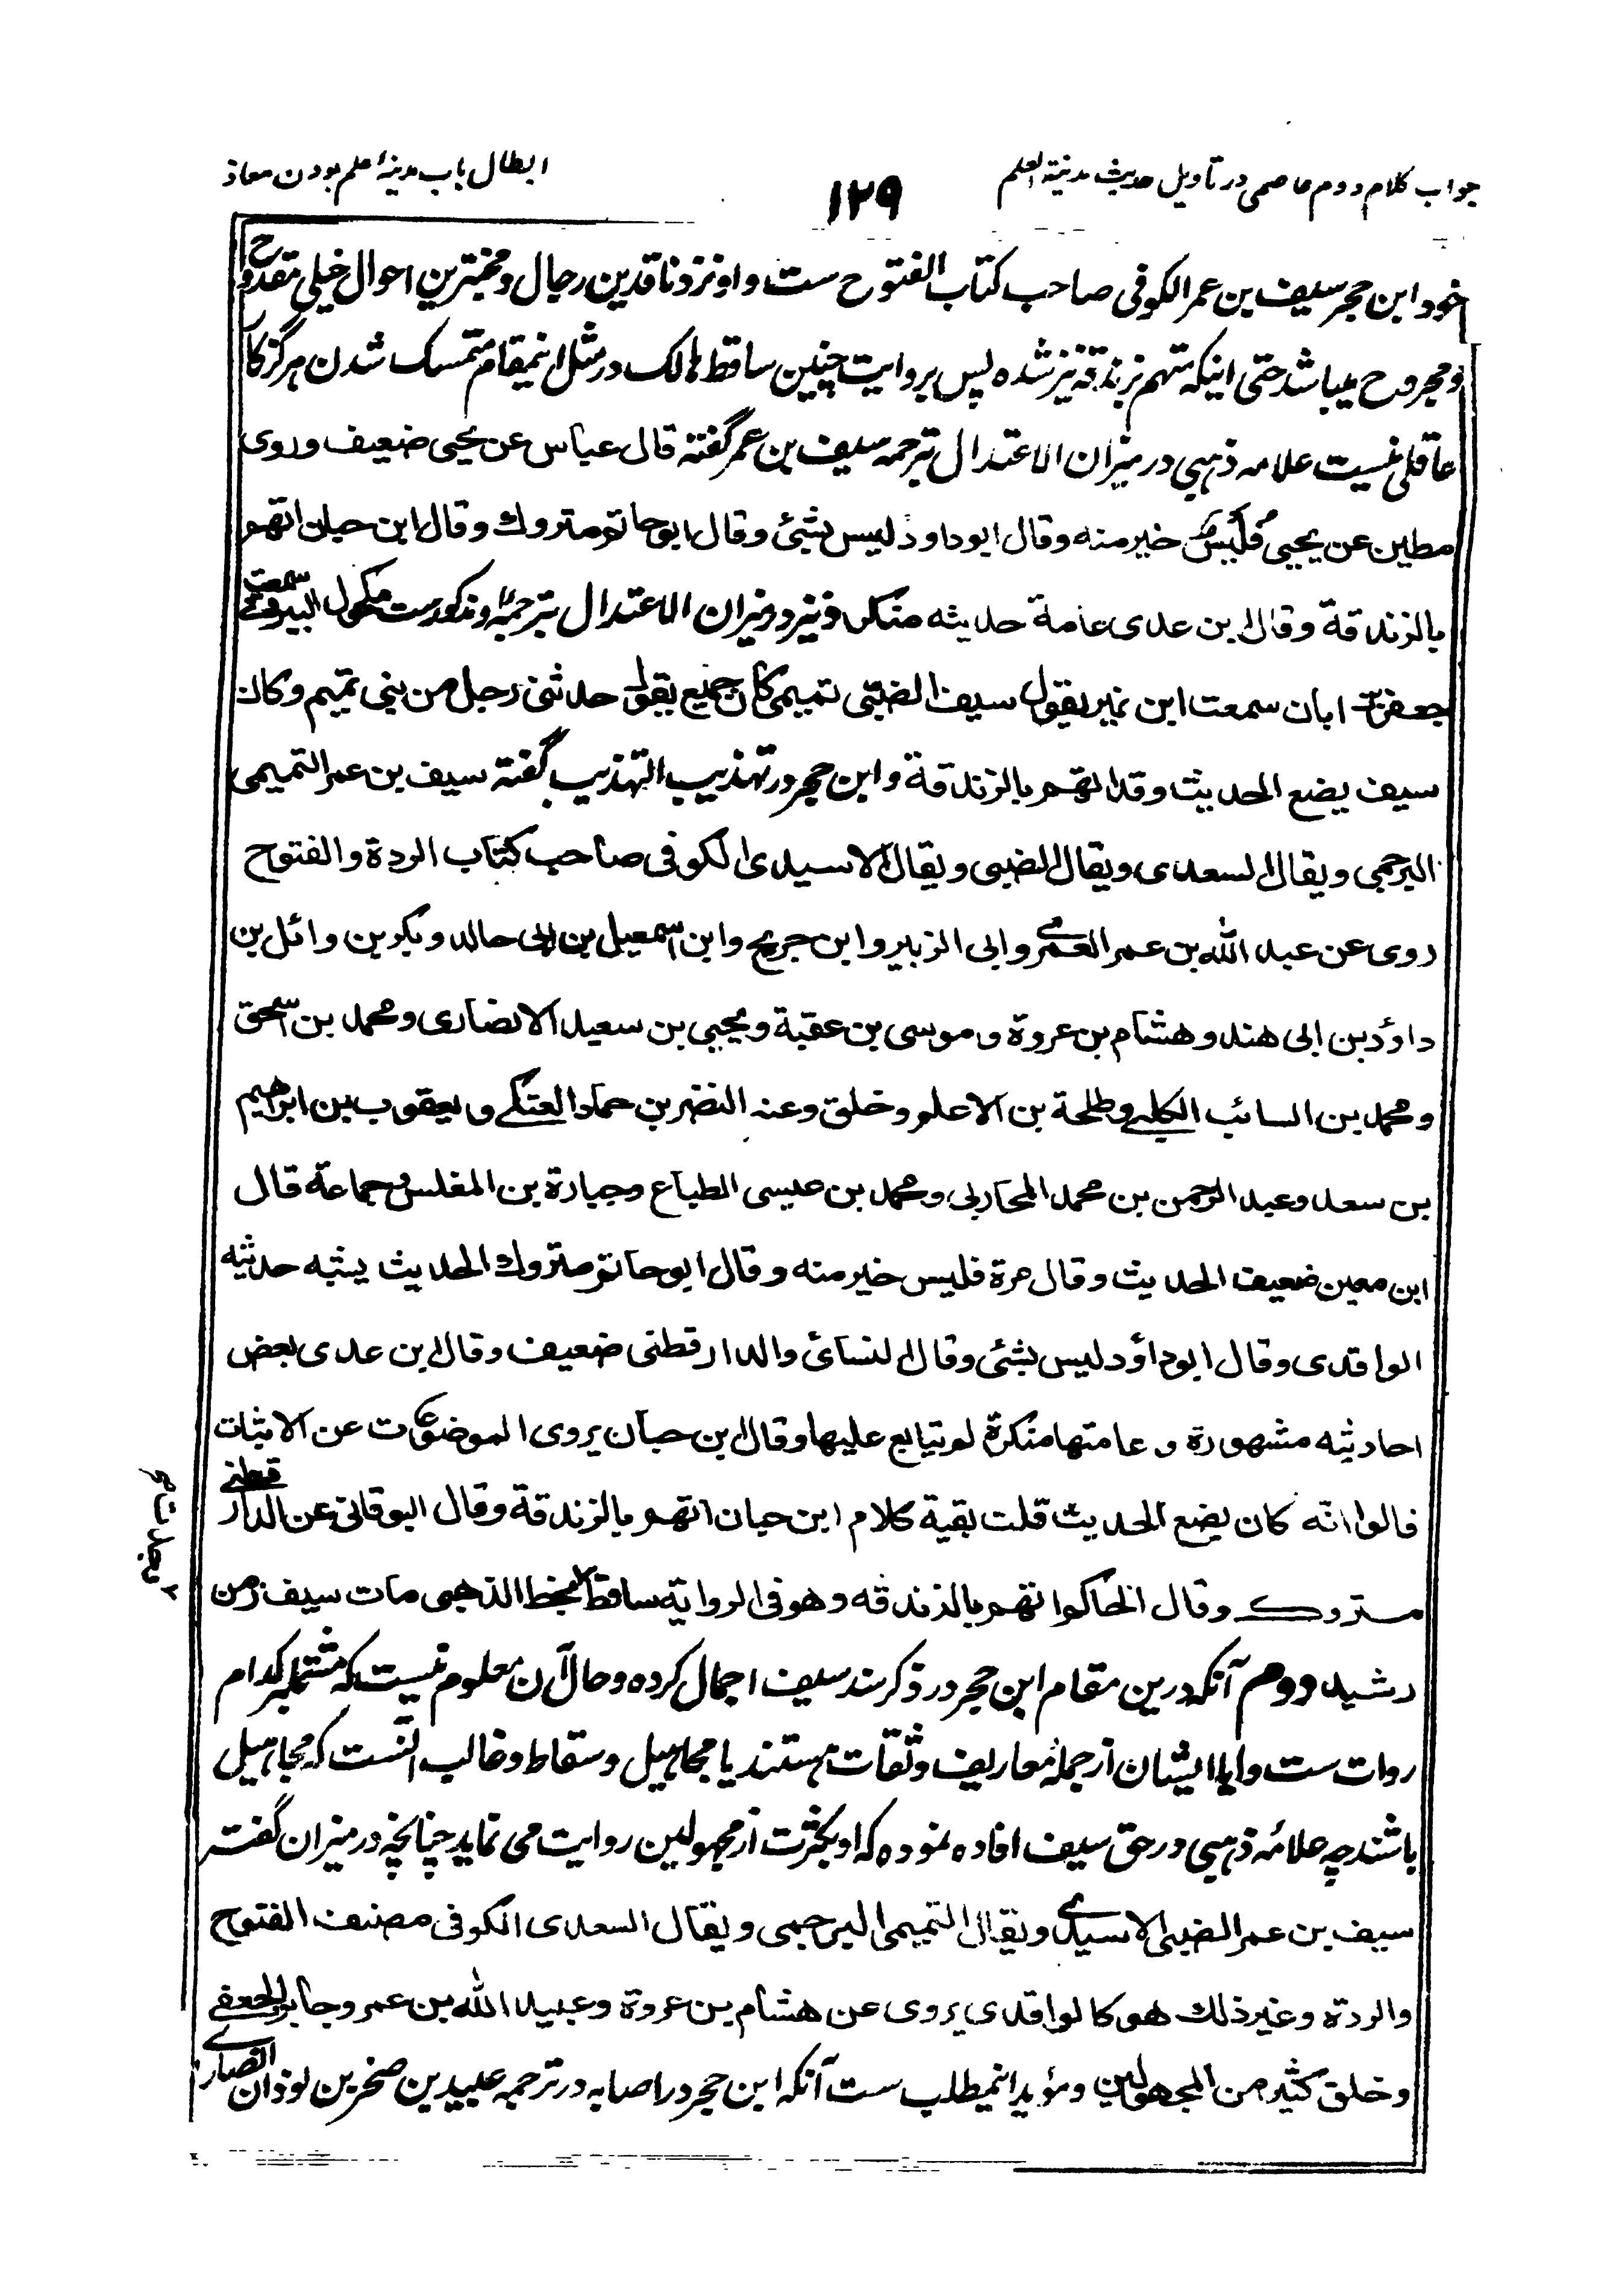 جواب کلام دوم عاصمی در تاویل حدیث مدینة العلم
۱۲۹
ابطال باب مدینهٔ علم بودن معاذ
خود ابن حجر سیف بن عمر الکوفی صاحب کتاب الفتوح ست و او نزد ناقدین رجال و مختبرین احوال خیلی مقدوح
و مجروح میباشد حتی اینکه متهم بزندقه نیز شده پس بروایت چنین ساقط هالک در مثل اینمقام متمسک شدن هرگز کار
عاقلی نیست علامه ذهبی در میزان الاعتدال بترجمه سیف بن عمر گفته قال عباس عن یحیی ضعیف وروی
مطین عن یحیی فلیس خیر منه وقال ابو داود لیس بشئ وقال ابو حاتم متروك وقال ابن حبان اتهم
بالزندقة وقال ابن عدی عامة حدیثه منکر و نیز در میزان الاعتدال بترجمهٔ او مذکورست مکحول البیروتی سمعت
جعفر بن ابان سمعت ابن نمیر یقول سیف الضبّی تمیمی کان جمیع یقول حدثنی رجل من بنی تمیم وکان
سیف یضع الحدیث وقد اتهم بالزندقة و ابن حجر در تهذیب التهذیب گفته سیف بن عمر التمیمی
البرجمی ویقال السعدی ویقال الضبی ویقال الاسیدی الکوفی صاحب کتاب الردة والفتوح
روی عن عبد الله بن عمر العمری وابی الزبیر وابن جریج وابن اسمعیل بن ابی خالد وبکر بن وائل بن
داؤد بن ابی هند وهشام بن عروة وموسی بن عقبة ویحیی بن سعید الانصاری ومحمد بن اسحق
ومحمد بن السائب الکلبی وطلحة بن الاعلم وخلق وعنه النضر بن حماد العتکی ویعقوب بن ابراهیم
بن سعد وعبد الرحمن بن محمد المحاربی ومحمد بن عیسی الطباع وجبارة بن المغلس وجماعة قال
ابن معین ضعیف الحدیث وقال مرة فلیس خیر منه وقال ابو حاتم متروك الحدیث یشبه حدیثه
الواقدی وقال ابو داؤد لیس بشئ وقال النسائ والدارقطنی ضعیف وقال ابن عدی بعض
احادیثه مشهورة وعامتها منکرة لم یتابع علیها وقال ابن حبان یروی الموضوعات عن الاثبات
قالوا انّه کان یضع الحدیث قلت بقیة کلام ابن حبان اتهم بالزندقة وقال البرقانی عن الدارقطنی
متروك وقال الحاکم اتهم بالزندقه وهو فی الروایة ساقط بخط الذهبی مات سیف زمن
رشید دوم آنکه درین مقام ابن حجر در ذکر سند سیف اجمال کرده و حال آن معلوم نیست که مشتمل بر کدام
روات ست و آیا ایشان از جملهٔ معاریف و ثقات هستند یا مجاهیل و سقاط و غالب آنست که مجاهیل
باشند چه علامهٔ ذهبی در حق سیف افاده نموده که او بکثرت از مجهولین روایت می نماید چنانچه در میزان گفته
سیف بن عمر الضبی الاسیدی ویقال التمیمی البرجمی ویقال السعدی الکوفی مصنف الفتوح
والردة وغیر ذلك هو کالواقدی یروی عن هشام بن عروة وعبید الله بن عمر وجابر الجعفی
وخلق کثیر من المجهولین و مؤید اینمطلب ست آنکه ابن حجر در اصابه در ترجمه عبید بن صخر بن لوذان انصاری